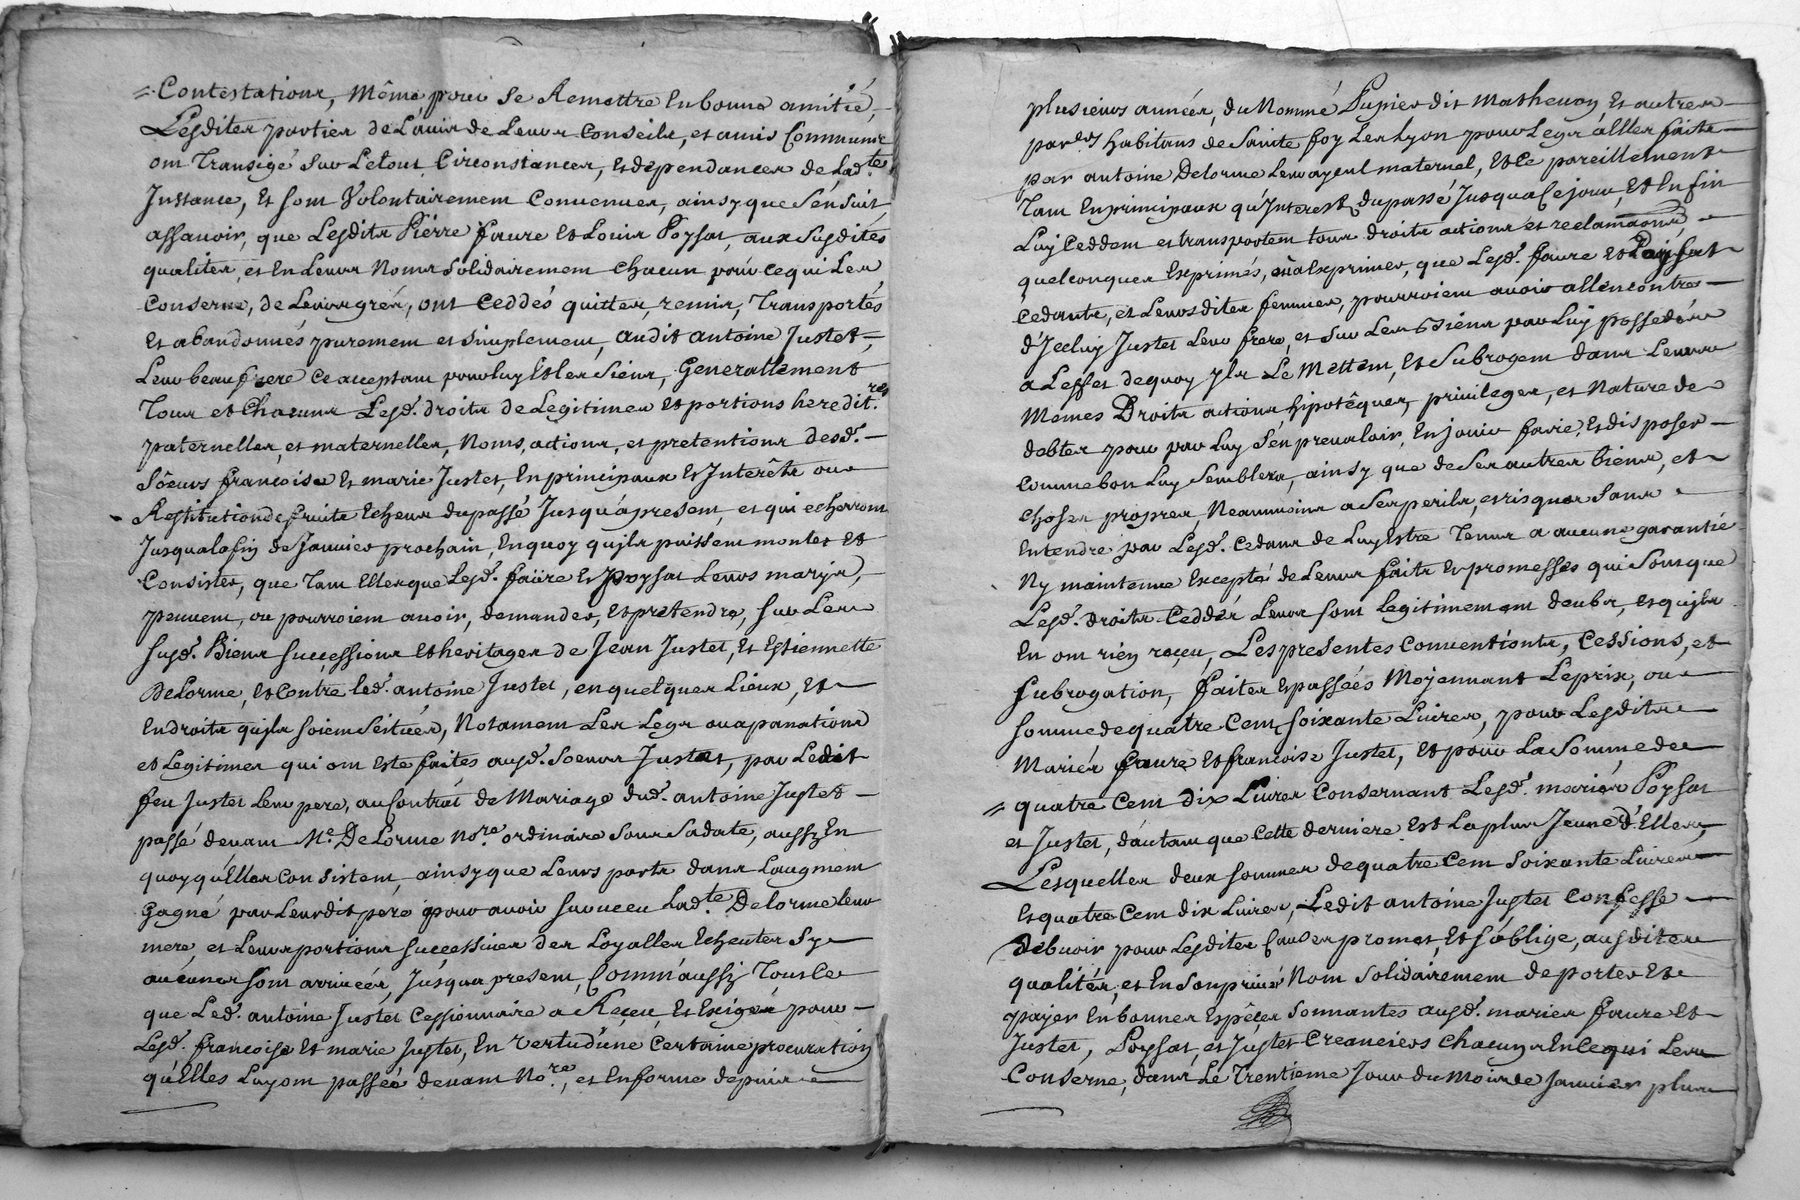 Contestations, Même pour se Remettre En bonne amitié,
Lesdites parties de L'avis de Leurs Conseils, et amis Communs
ont Transigé sur Le tout Circonstances, et dépendances de Lad.te
Instance, Et sont Volontairement Convenues, ainsy que s'en suit,
assavoir, que Lesdits Piérre faure et Louis Poysat, aux susdites
qualités, et En Leurs Noms solidairement chacun pour ce qui Les
Conserne, de Leurs grés, ont Ceddés quittes, remis, Transportés
Et abandonnés purement et simplement, audit antoine Justet,
Leur beaufrere ce acceptant pour luy Et les siens, Generallement
Tous et Chacuns Lesd. droits de Legitimes Et portions heredit.res
paternelles, et maternelles, Noms, actions, et pretentions desd.
sôeurs françoise Et marie Justet, En principaux Et Interêts ou
Restitution de fruits Echeus du passé Jusqu'á present, et qui echerront
Jusqu'a la fin de Janvier prochain, En quoy qu'ils puissent monter et
Consister, que Tant Elles que Lesd. faüre et Poysat Leurs marys,
peuvent, ou pourroient avoir, demander, Et prétendre, sur Les
susd. Biens successions Et heritages de Jean Justet, Et Estiennette
DeLorme, et Contre led. antoine Justet, en quelques Lieux, Et
Endroits qu'ils soient situés, Notament Les Legs ou apanations
et Legitimes qui ont Este faites ausd. soeurs Justet, par Ledit
feu Justet Leur pere, au Contrat de Mariage dud. antoine Justet
passé devant M.e DeLorme No.re ordinaire sous sa date, aussy En
quoy qu'Elles Consistent, ainsy que Leurs parts dans L'augment
Gagné par Leurdit pere pour avoir survecu Lad.te Delorme leur
mere, et Leurs portions successives des Loyalles Echeutes sy
aucunes sont arrivées, Jusqu'a present, Comm'aussy Tout ce
que Led. antoine Justet Cessionnaire a Reçeu, Et Exiger pour
Lesd. françoise Et marie Justet, En vertu d'une Certaine procuration
qu'Elles Luy ont passée devant No.re, et En forme depuis
plusieurs années, du Nommé Pupier dit Mathevon, Et autres
par.ers habitans de Sainte foy Les Lyon pour Legs á Elles faits
par antoine Delorme Leur ayeul maternel, Et ce pareillement
Tant En principaux qu'Interest, du passé Jusqu'a ce jour, Et En fin
Luy Ceddent et transportent tous droits actions et reclamations
quelconques Exprimés, ou a Exprimer, que Lesd. faure Et Poysat
cedants, et Leursdites femmes, pourroient avoir allencontre
d'Jceluy Justet Leur frere, et sur Les Biens par Luy possedés
a Leffet de quoy Jls Le Mettent, Et subrogent dans Leurs
Mêmes Droits actions hipotêques, privileges, et Nature de
debtes pour par Luy s'en prevaloir, En jouir faire, Et disposer
comme bon Luy semblera, ainsy que de ses autres biens, et
choses propres, Neanmoins a ses perils, et risques sans
Entendre par Lesd. cedans de Luy Estre Tenus a aucune garantie
Ny maintenue Exceptés de Leurs faits Et promesses qui sont que
Lesd. droits Ceddés Leurs sont Legitimement deubs, et qu'ils
En ont rien reçeu, Les presentes Conventions, Cessions, et
subrogation, faites Et passéés Moyennant Le prix, ou
somme de quatre Cent soixante Livres, pour Lesdits
Mariés faure Et françoise Justet, Et pour La somme de
quatre Cent dix Livres Consernant Lesd. mariés Poysat
et Justet, d'autant que Cette derniere Est La plus Jeune d'Elles,
Lesquelles deux sommes de quatre Cent soixante Livres
Et quatre Cent dix Livres, Ledit antoine Justet Confesse
debvoir pour Lesdites Causes promet, Et s'oblige, ausdites
qualités, et En son privé Nom solidairement de porter Et
payer En bonnes Espêces sonnantes ausd. mariés faure Et
Justet, Poysat, et Justet Creanciers chacuns En ce qui Les
Conserne, dans Le Trentieme Jour du Mois de Janvier plus